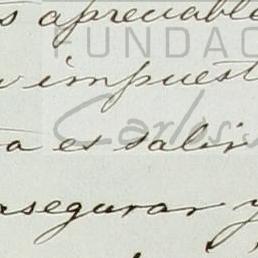 s apreciable
FUNDAC
impuest
Carlos
a es salir
asegurar y